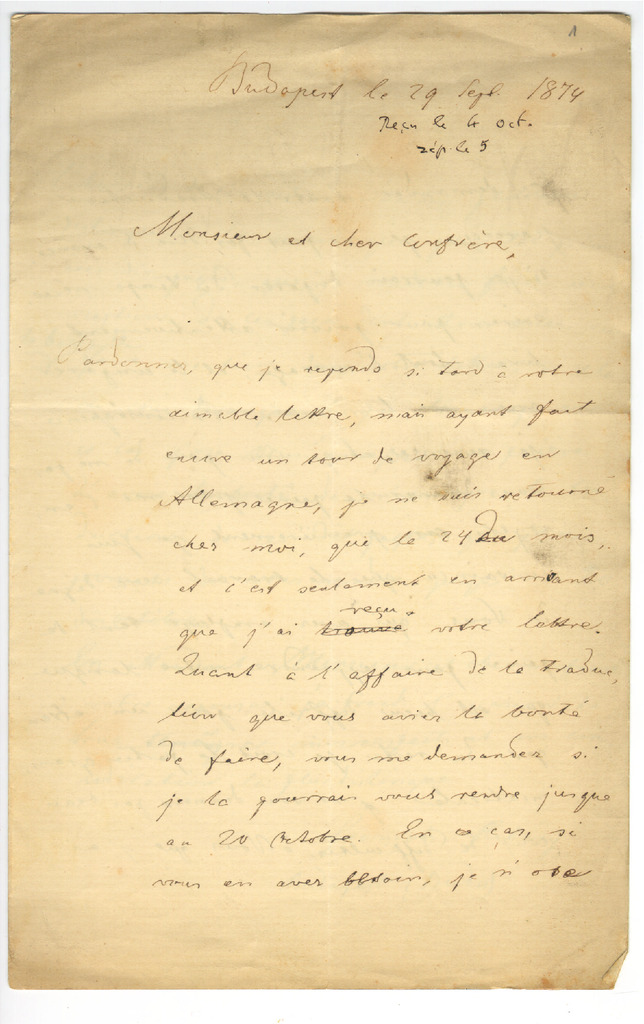 1
Budapest le 29 Sept. 1874
Reçu le 4 oct.
rép. le 5
Monsieur et cher Confrère,
Pardonnez, que je reponds si tard à votre
aimable lettre, mais ayant fait
encore un tour de voyage en
Allemagne, je ne suis retourné
chez moi, que le 24 du mois,
et c'est seulement en arrivant
reçu
que j'ai trouvé votre lettre.
Quant à l'affaire de la traduc,
tion que vous aviez la bonté
de faire, vous me demandez si
je la pourrais vous rendre jusque
au 20 Octobre. En ce cas, si
vous en avez besoin, je n'ose